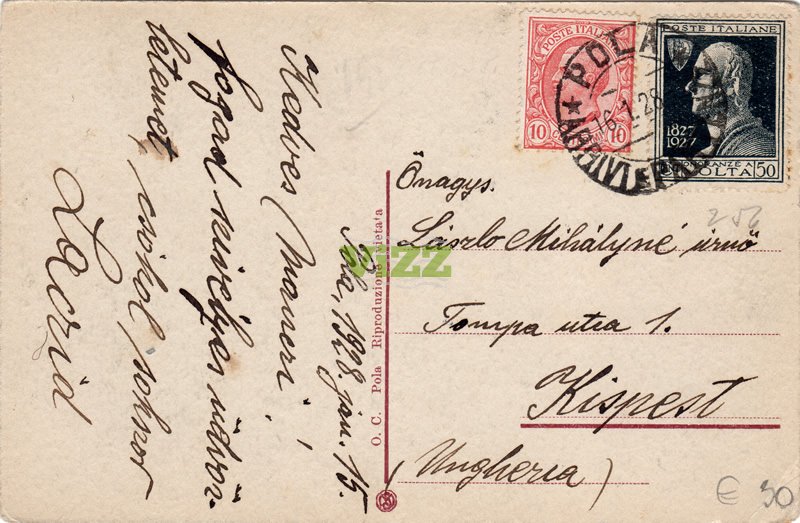 Pola, 1928. jan. 15.
Kedves Maneri!
fogad szivélyes üdvöz-
letemet, csókol sokszor
László
O. C. Pola Riproduzione vietata
POSTE ITALIANE
10 10
POLA
16.1.28
ARRIVI E PAR
POSTE ITALIANE
1827
1927
VOLTA 50
256
Önagys.
László Mihályné úrnő
Tompa utca 1.
Kispest
(Ungheria)
vizz
€ 30